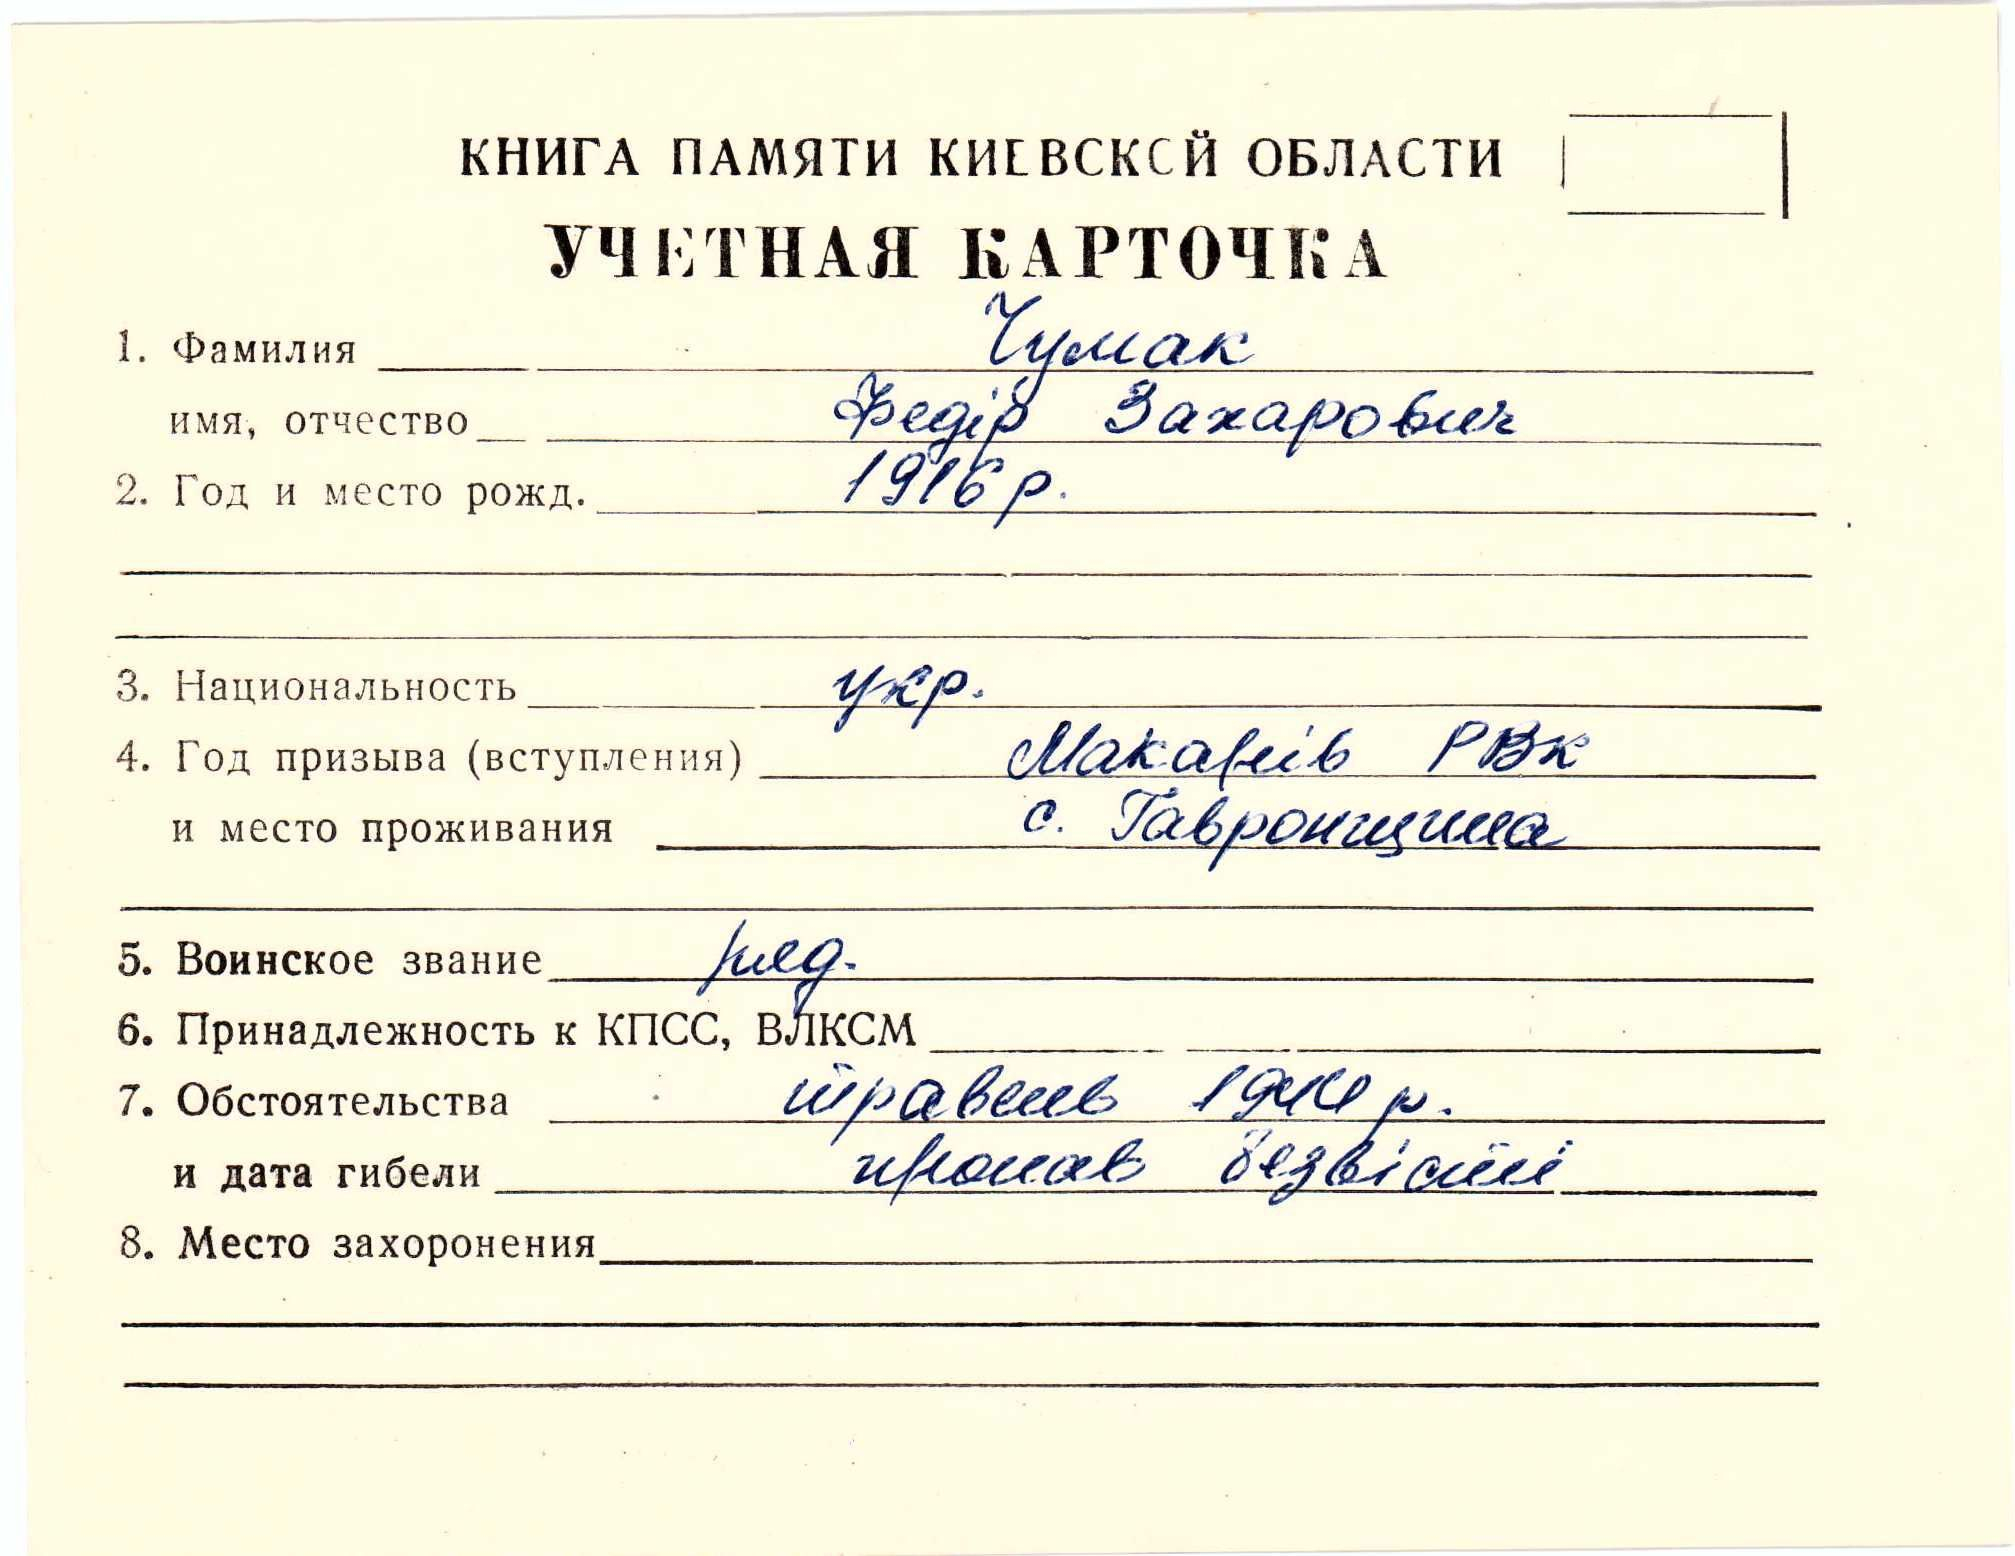 КНИГА ПАМЯТИ КИЕВСКОЙ ОБЛАСТИ
УЧЕТНАЯ КАРТОЧКА
1. Фамилия Чумак
имя, отчество Федір Захарович
2. Год и место рожд. 1916 р.
3. Национальность укр.
4. Год призыва (вступления) Макарів РВК
и место проживания с. Гавронщина
5. Воинское звание ряд.
6. Принадлежность к КПСС, ВЛКСМ
7. Обстоятельства травень 1944 р.
и дата гибели пропав безвісті
8. Место захоронения